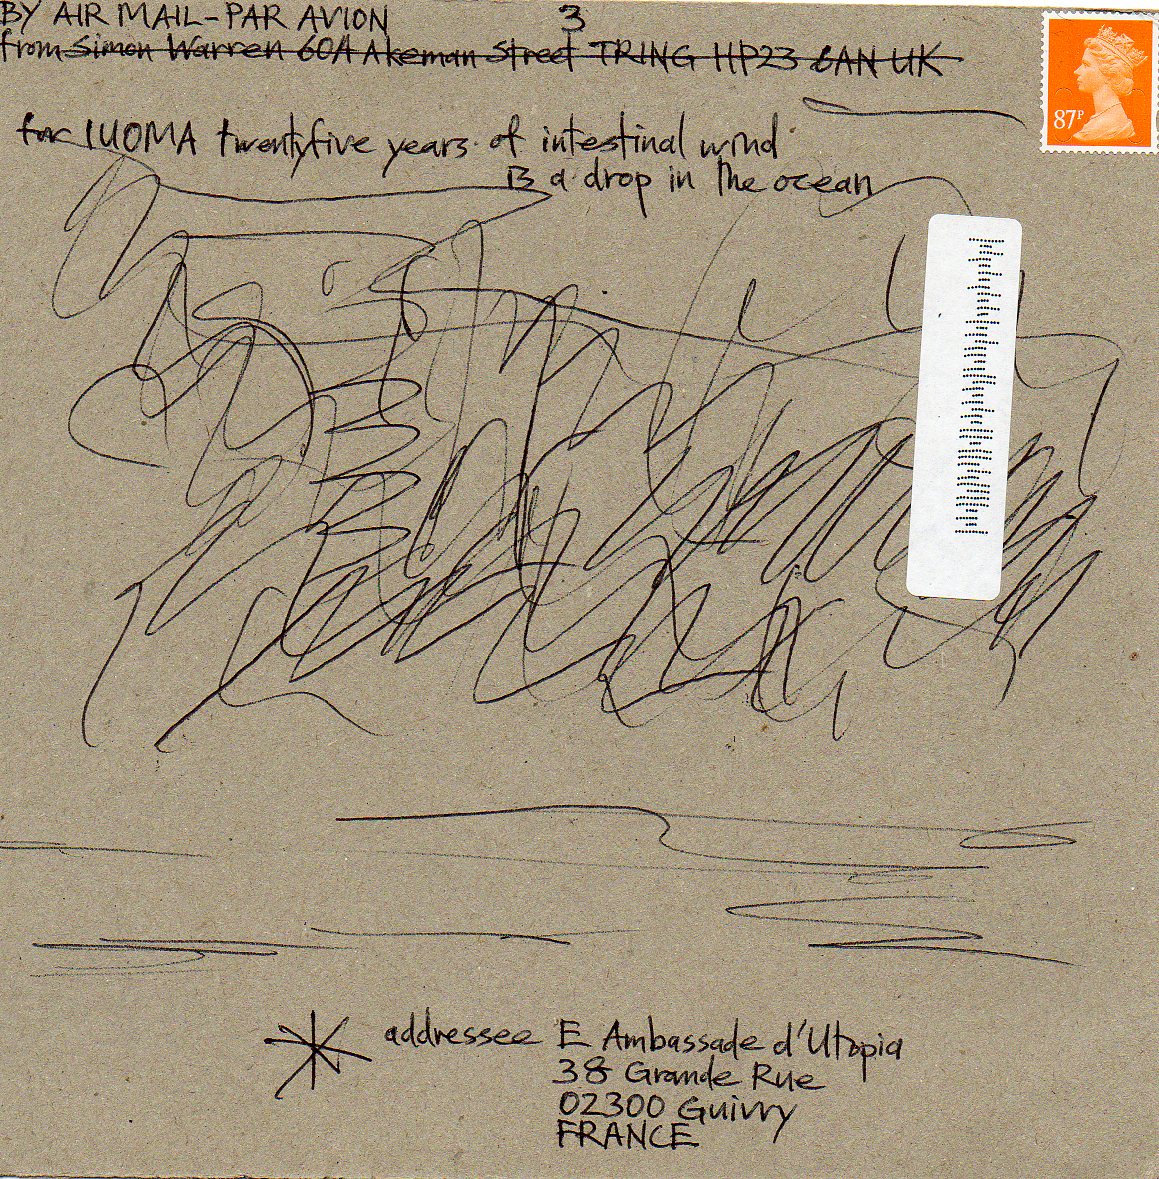 BY AIR MAIL-PAR AVION
from Simon Warren 60A Akeman Street TRING HP23 6AN UK
3
87P
for IUOMA twentyfive years of intestinal wind
is a drop in the ocean
addressee E Ambassade d'Utopia
38 Grande Rue
02300 Guivry
FRANCE